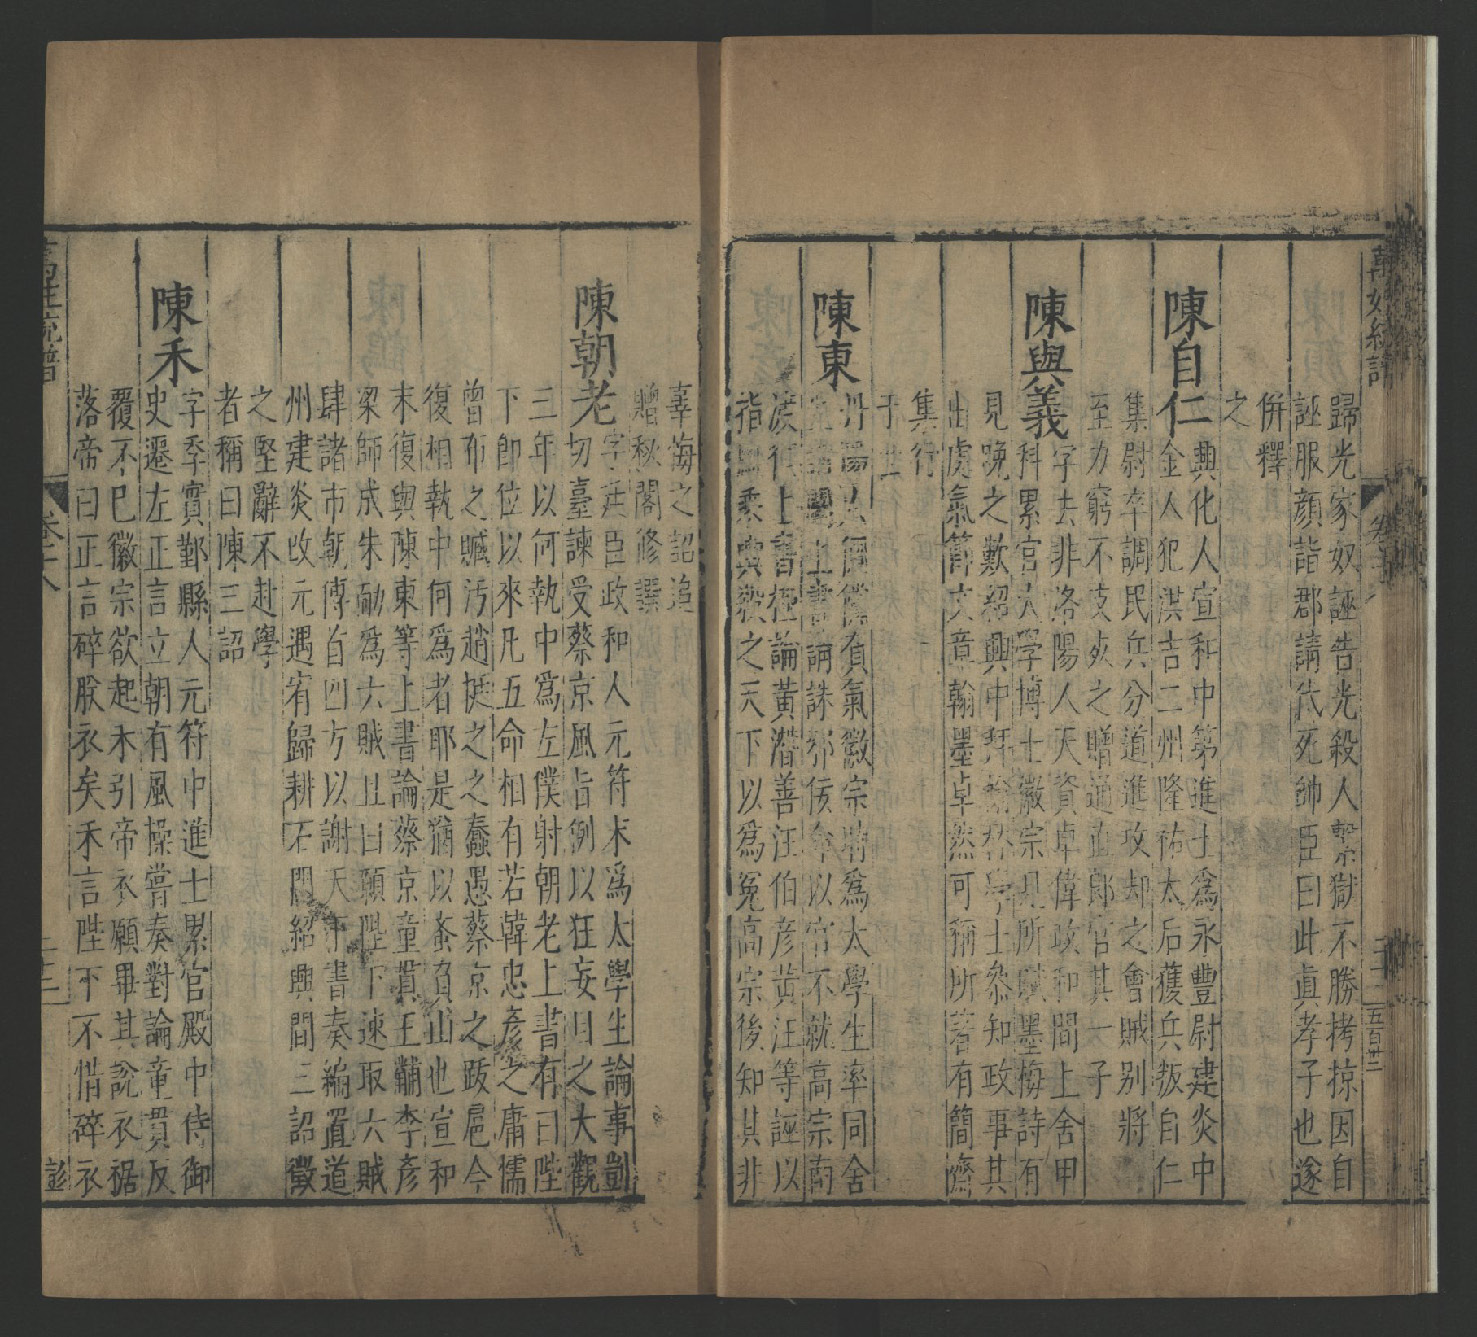 萬姓統譜
歸光家奴誣告光殺人繫獄不勝拷掠因自
誣服顔詣郡請代死帥臣曰此真孝子也遂
併釋
之
陳自仁
興化人宣和中第進士爲永豐尉建炎中
金人犯洪吉二州隆祐太后獲兵叛自仁
集尉卒調民兵分道進攻却之會賊别將
至力窮不支死之贈通直郎官其一子
陳與義
字去非洛陽人天資卓偉政和間上舍甲
科累官太學博士徽宗見所賦墨梅詩有
見晚之歎紹興中拜翰林學士參知政事其
出處氣節文章翰墨卓然可稱所著有簡齋
集行
于世
陳東
丹陽人倜儻負氣徽宗時爲太學生率同舍
上書請誅邪佞命以官不就高宗南
渡徃上書極論黃潛善汪伯彦黃汪等誣以
指斥乘輿殺之天下以爲冤高宗後知其非
辜悔之詔追
贈秘閣修譔
陳朝老
字廷臣政和人元符末爲太學生論事剴
切臺諫受蔡京風旨例以狂妄目之大觀
三年以何執中爲左僕射朝老上書有曰陛
下即位以來凡五命相有若韓忠彦之庸懦
曾布之贓汚趙挺之之蠢愚蔡京之跋扈今
復相執中何爲者耶是猶以蚤負山也宣和
末復與陳東等上書論蔡京童貫王黼李彦
梁師成朱勔爲六賊且曰願陛下速取六賊
肆諸市朝傳首四方以謝天下書奏編置道
州建炎改元遇宥歸耕石門紹興間三詔徵
之堅辭不赴學
者稱曰陳三詔
陳禾
字季實鄞縣人元符中進士累官殿中侍御
史遷左正言立朝有風操嘗奏對論童貫反
覆不已徽宗欲起禾引帝衣願畢其說衣裾
落帝曰正言碎朕衣矣禾言陛下不惜碎衣
萬姓統譜